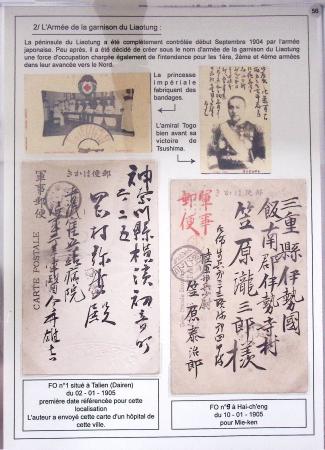 56
2/ L'Armée de la garnison du Liaotung :
La péninsule du Liaotung a été complètement contrôlée début Septembre 1904 par l'armée
japonaise. Peu après, il a été décidé de créer sous le nom d'armée de la garnison du Liaotung
une force d'occupation chargée également de l'intendance pour les 1ère, 2ème et 4ème armées
dans leur avancée vers le Nord.
La princesse
impériale
fabriquent des
bandages.
L'amiral Togo
bien avant sa
victoire de
Tsushima.
きがは便郵
軍事郵便
CARTE POSTALE
神奈川縣横濱初音町
六二五
殿
きがは便郵
軍事
郵便
三重縣伊勢國
飯南郡伊勢寺村
笠原瀧三郎様
笠原泰治郎
FO n°1 situé à Talien (Dairen)
du 02 - 01 - 1905
première date référencée pour cette
localisation
L'auteur a envoyé cette carte d'un hôpital de
cette ville.
FO n°9 à Hai-ch'eng
du 10 - 01 - 1905
pour Mie-ken